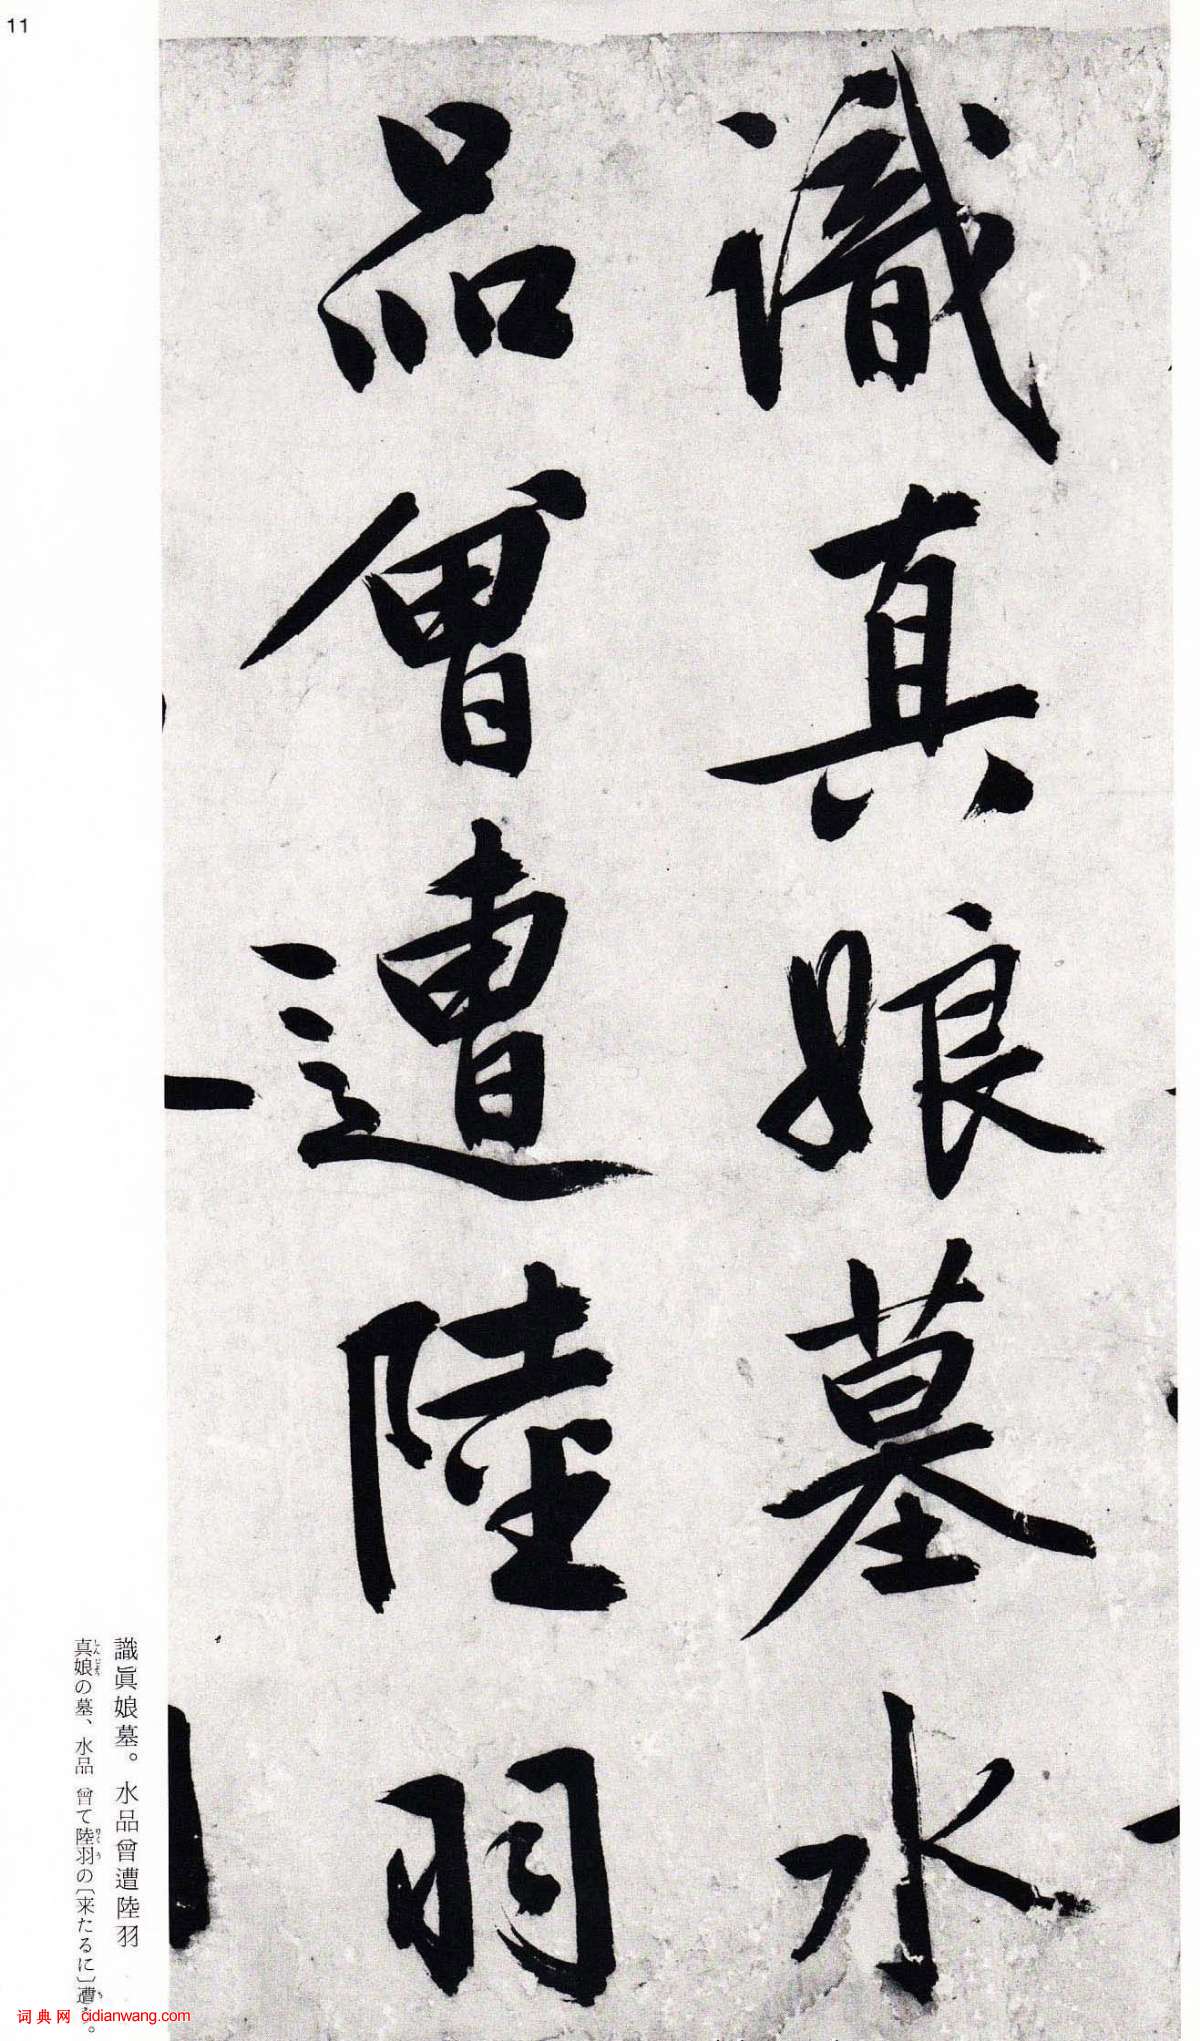 11
識真娘墓水
品曾遭陸羽
識眞娘墓。水品曾遭陸羽
真娘の墓、水品 曾て陸羽の〔来たるに〕遭う。
しんじょう
りくう
あ
词典网 cidianwang.com